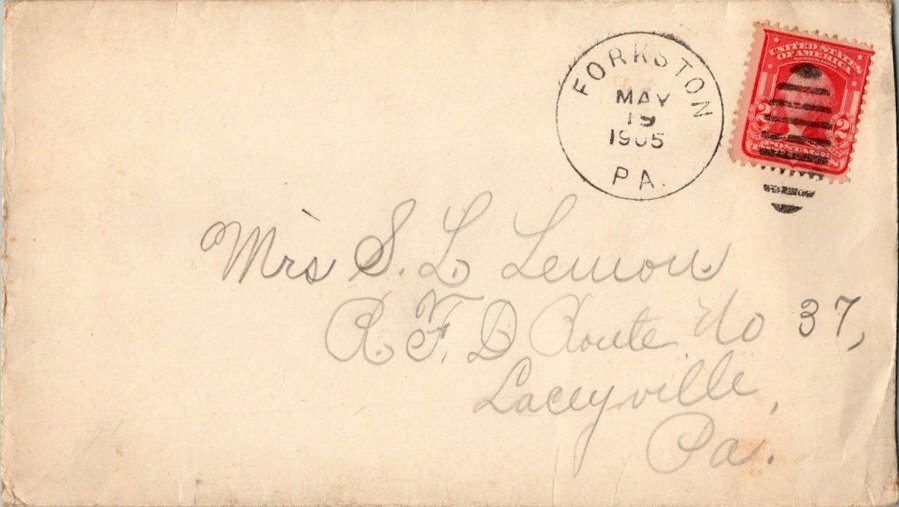 FORKSTON
MAY
19
1905
PA.
UNITED STATES
OF AMERICA
2 2
POSTAGE
Mrs S. L. Lemon
R. F. D Route No 37,
Laceyville,
Pa.